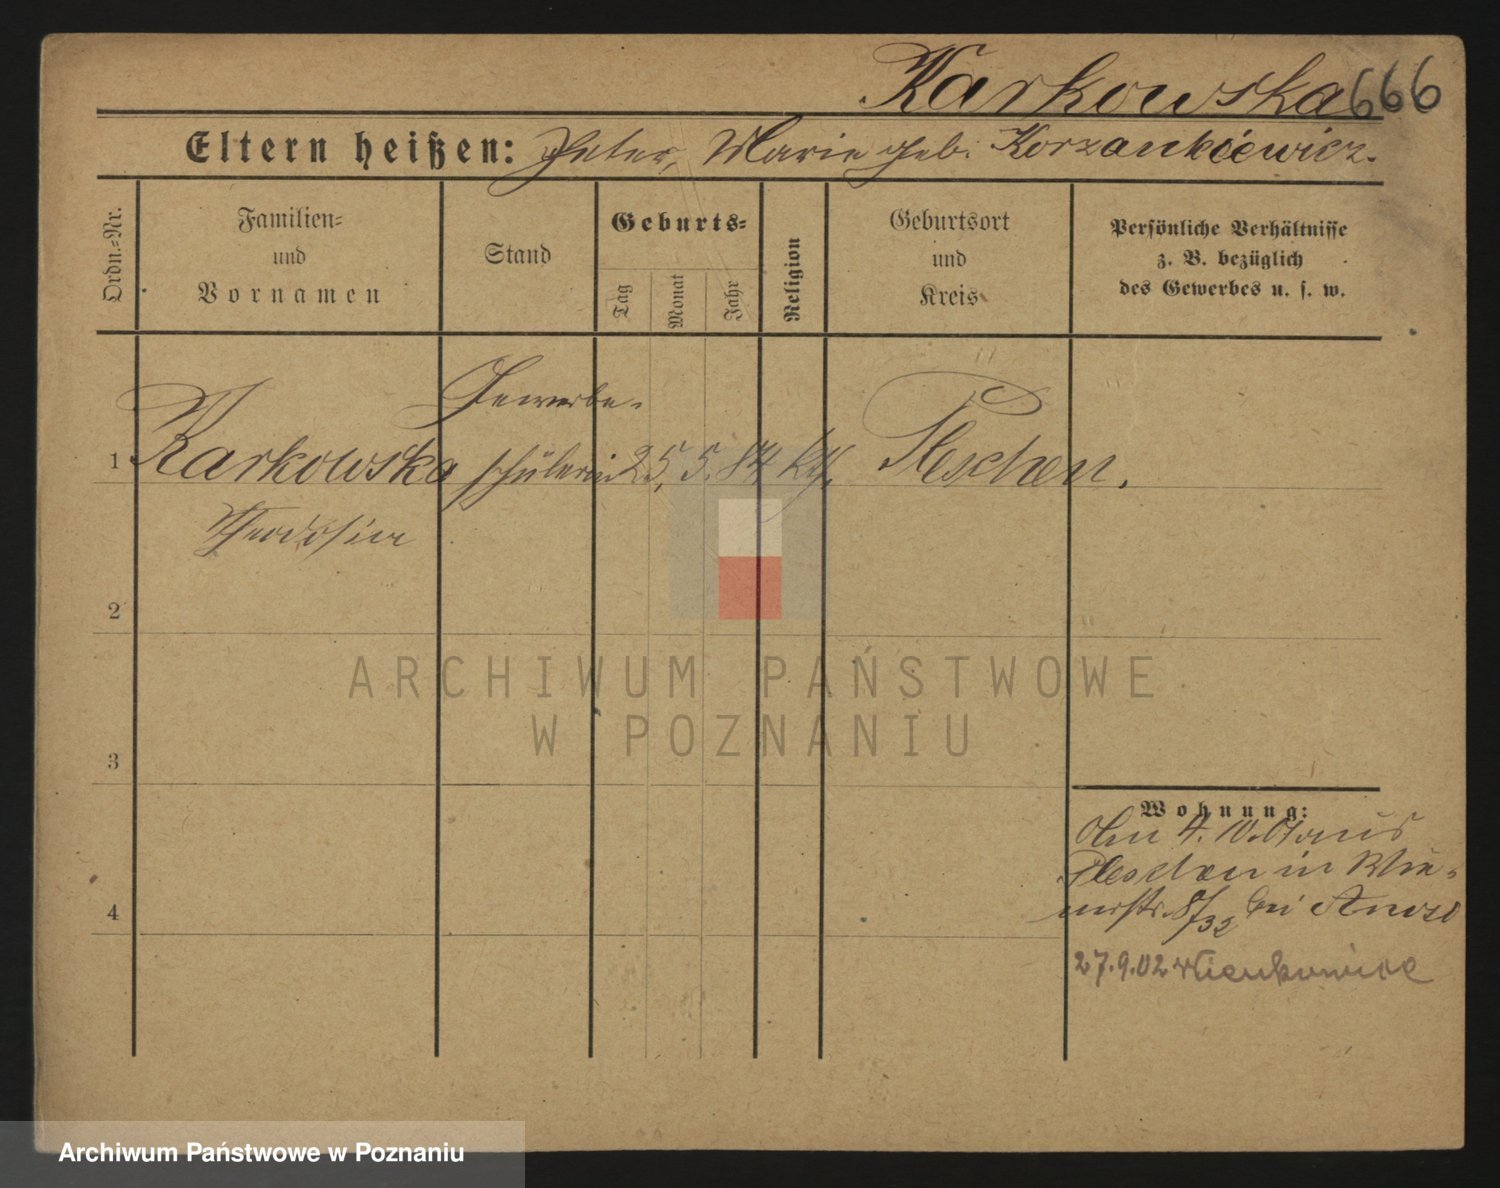 Karkowska 666
Eltern heißen: Peter, Marie geb. Korzankiewicz.
Ordn.-Nr.
Familien-
und
Vornamen
Stand
Geburts-
Tag
Monat
Jahr
Religion
Geburtsort
und
Kreis
Persönliche Verhältnisse
z. B. bezüglich
des Gewerbes u. s. w.
Gewerbe-
1 Karkowska schülerin 25. 5. 84 kth. Pleschen.
Theodosia
2
ARCHIWUM PAŃSTWOWE
W POZNANIU
3
Wohnung:
4. 10. 01 aus
Pleschen in
8/32 bei
4
27.9.02
Archiwum Państwowe w Poznaniu